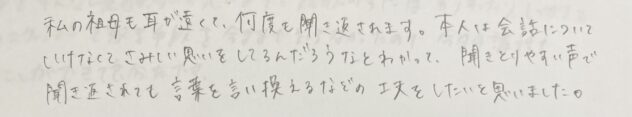 私の祖母も耳が遠くて、何度も聞き返されます。本人は会話について
いけなくてさみしい思いをしてるんだろうなとわかって、聞きとりやすい声で
聞き返されても言葉を言い換えるなどの工夫をしたいと思いました。